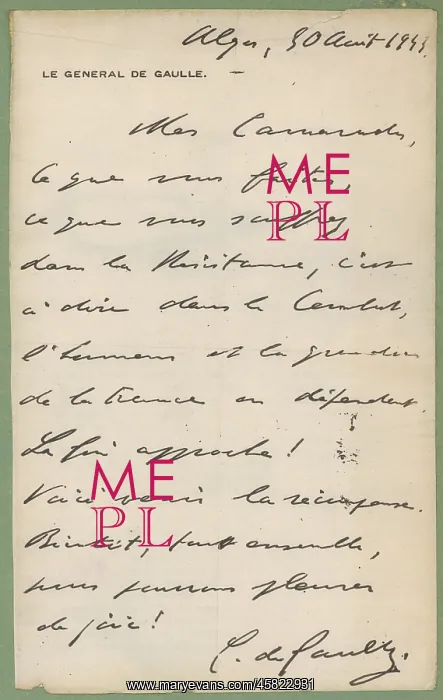 Alger, 30 Août 1943.
LE GENERAL DE GAULLE.
Mes Camarades,
Ce que vous faites,
ce que vous souffrez
dans la Résistance, c'est
à dire dans le Combat,
l'honneur et la grandeur
de la France en dépendent.
La fin approche!
Voici venir la récompense.
Bientôt, tous ensemble,
nous pourrons pleurer
de joie!
C. de Gaulle.
ME
PL
ME
PL
www.maryevans.com/45822931